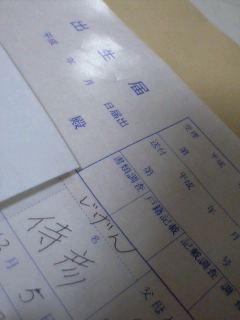 出生届
平成 年 月 日届出
殿
受理 平成 年 月
第 号
送付 平成 年 月
第 号
書類調査 戸籍記載 記載調査 調
じげん
名
侍彦
月 5日
父母